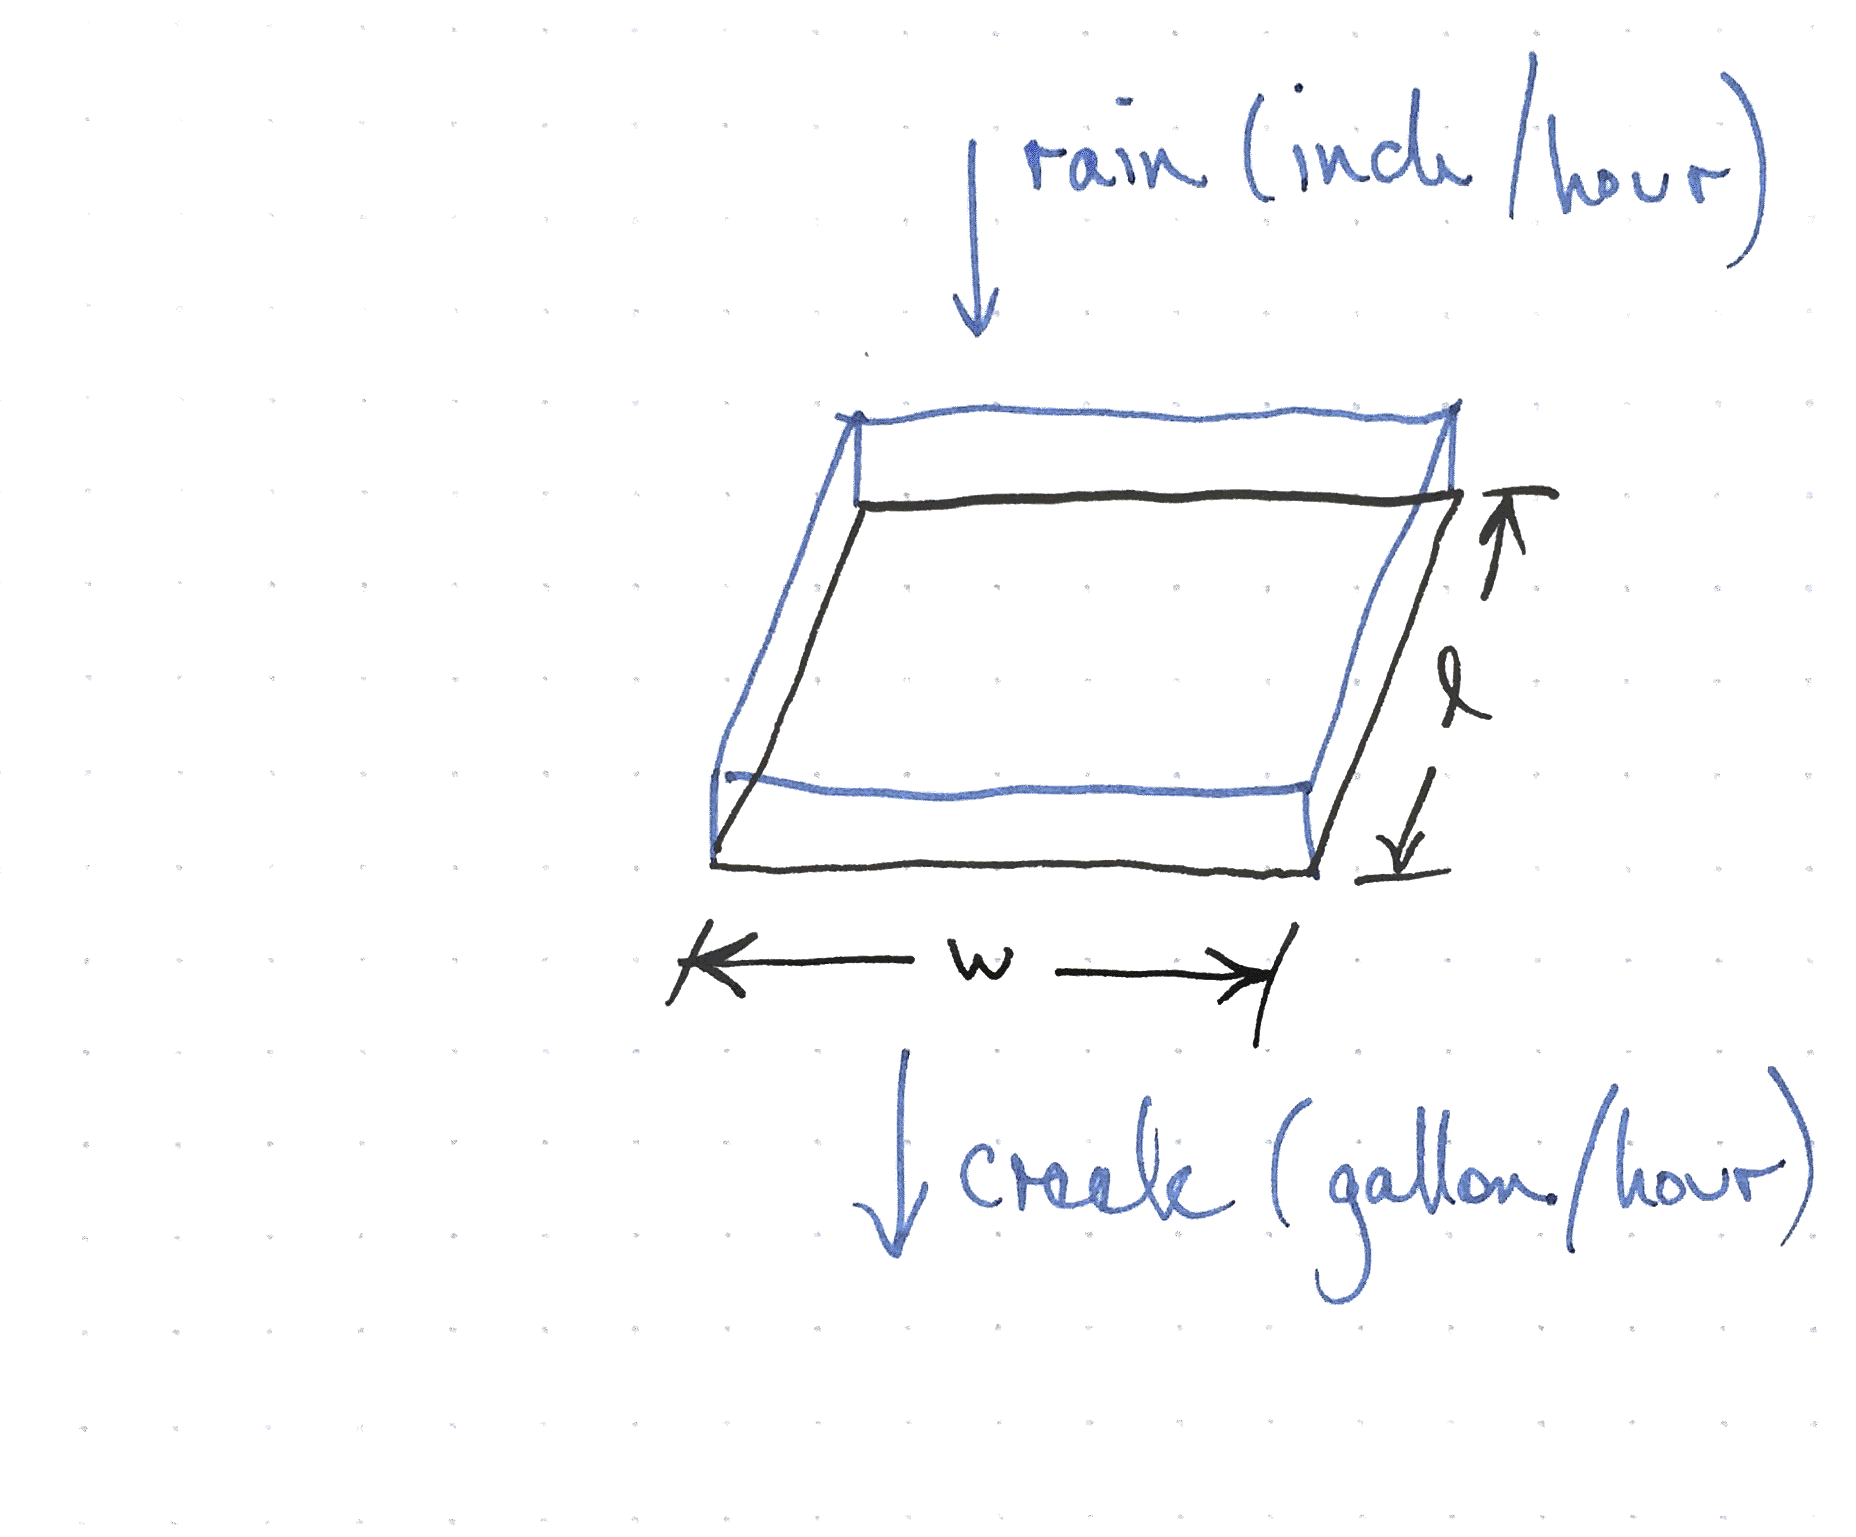 rain (inch/hour)
l
w
creek (gallon/hour)